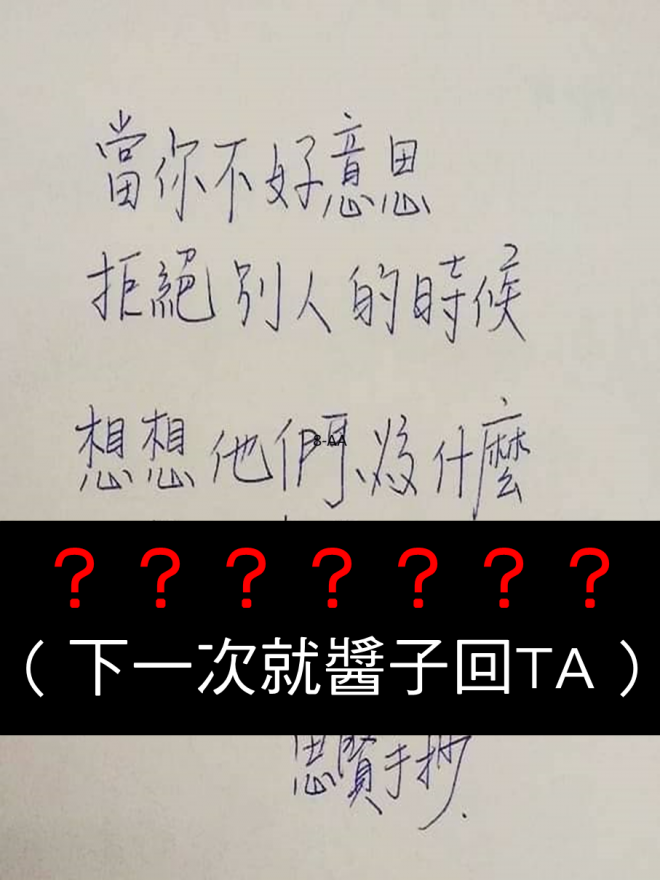 當你不好意思
拒絕別人的時候
想想他們為什麼
8-AA
???????
(下一次就醬子回TA)
思賢手抄.